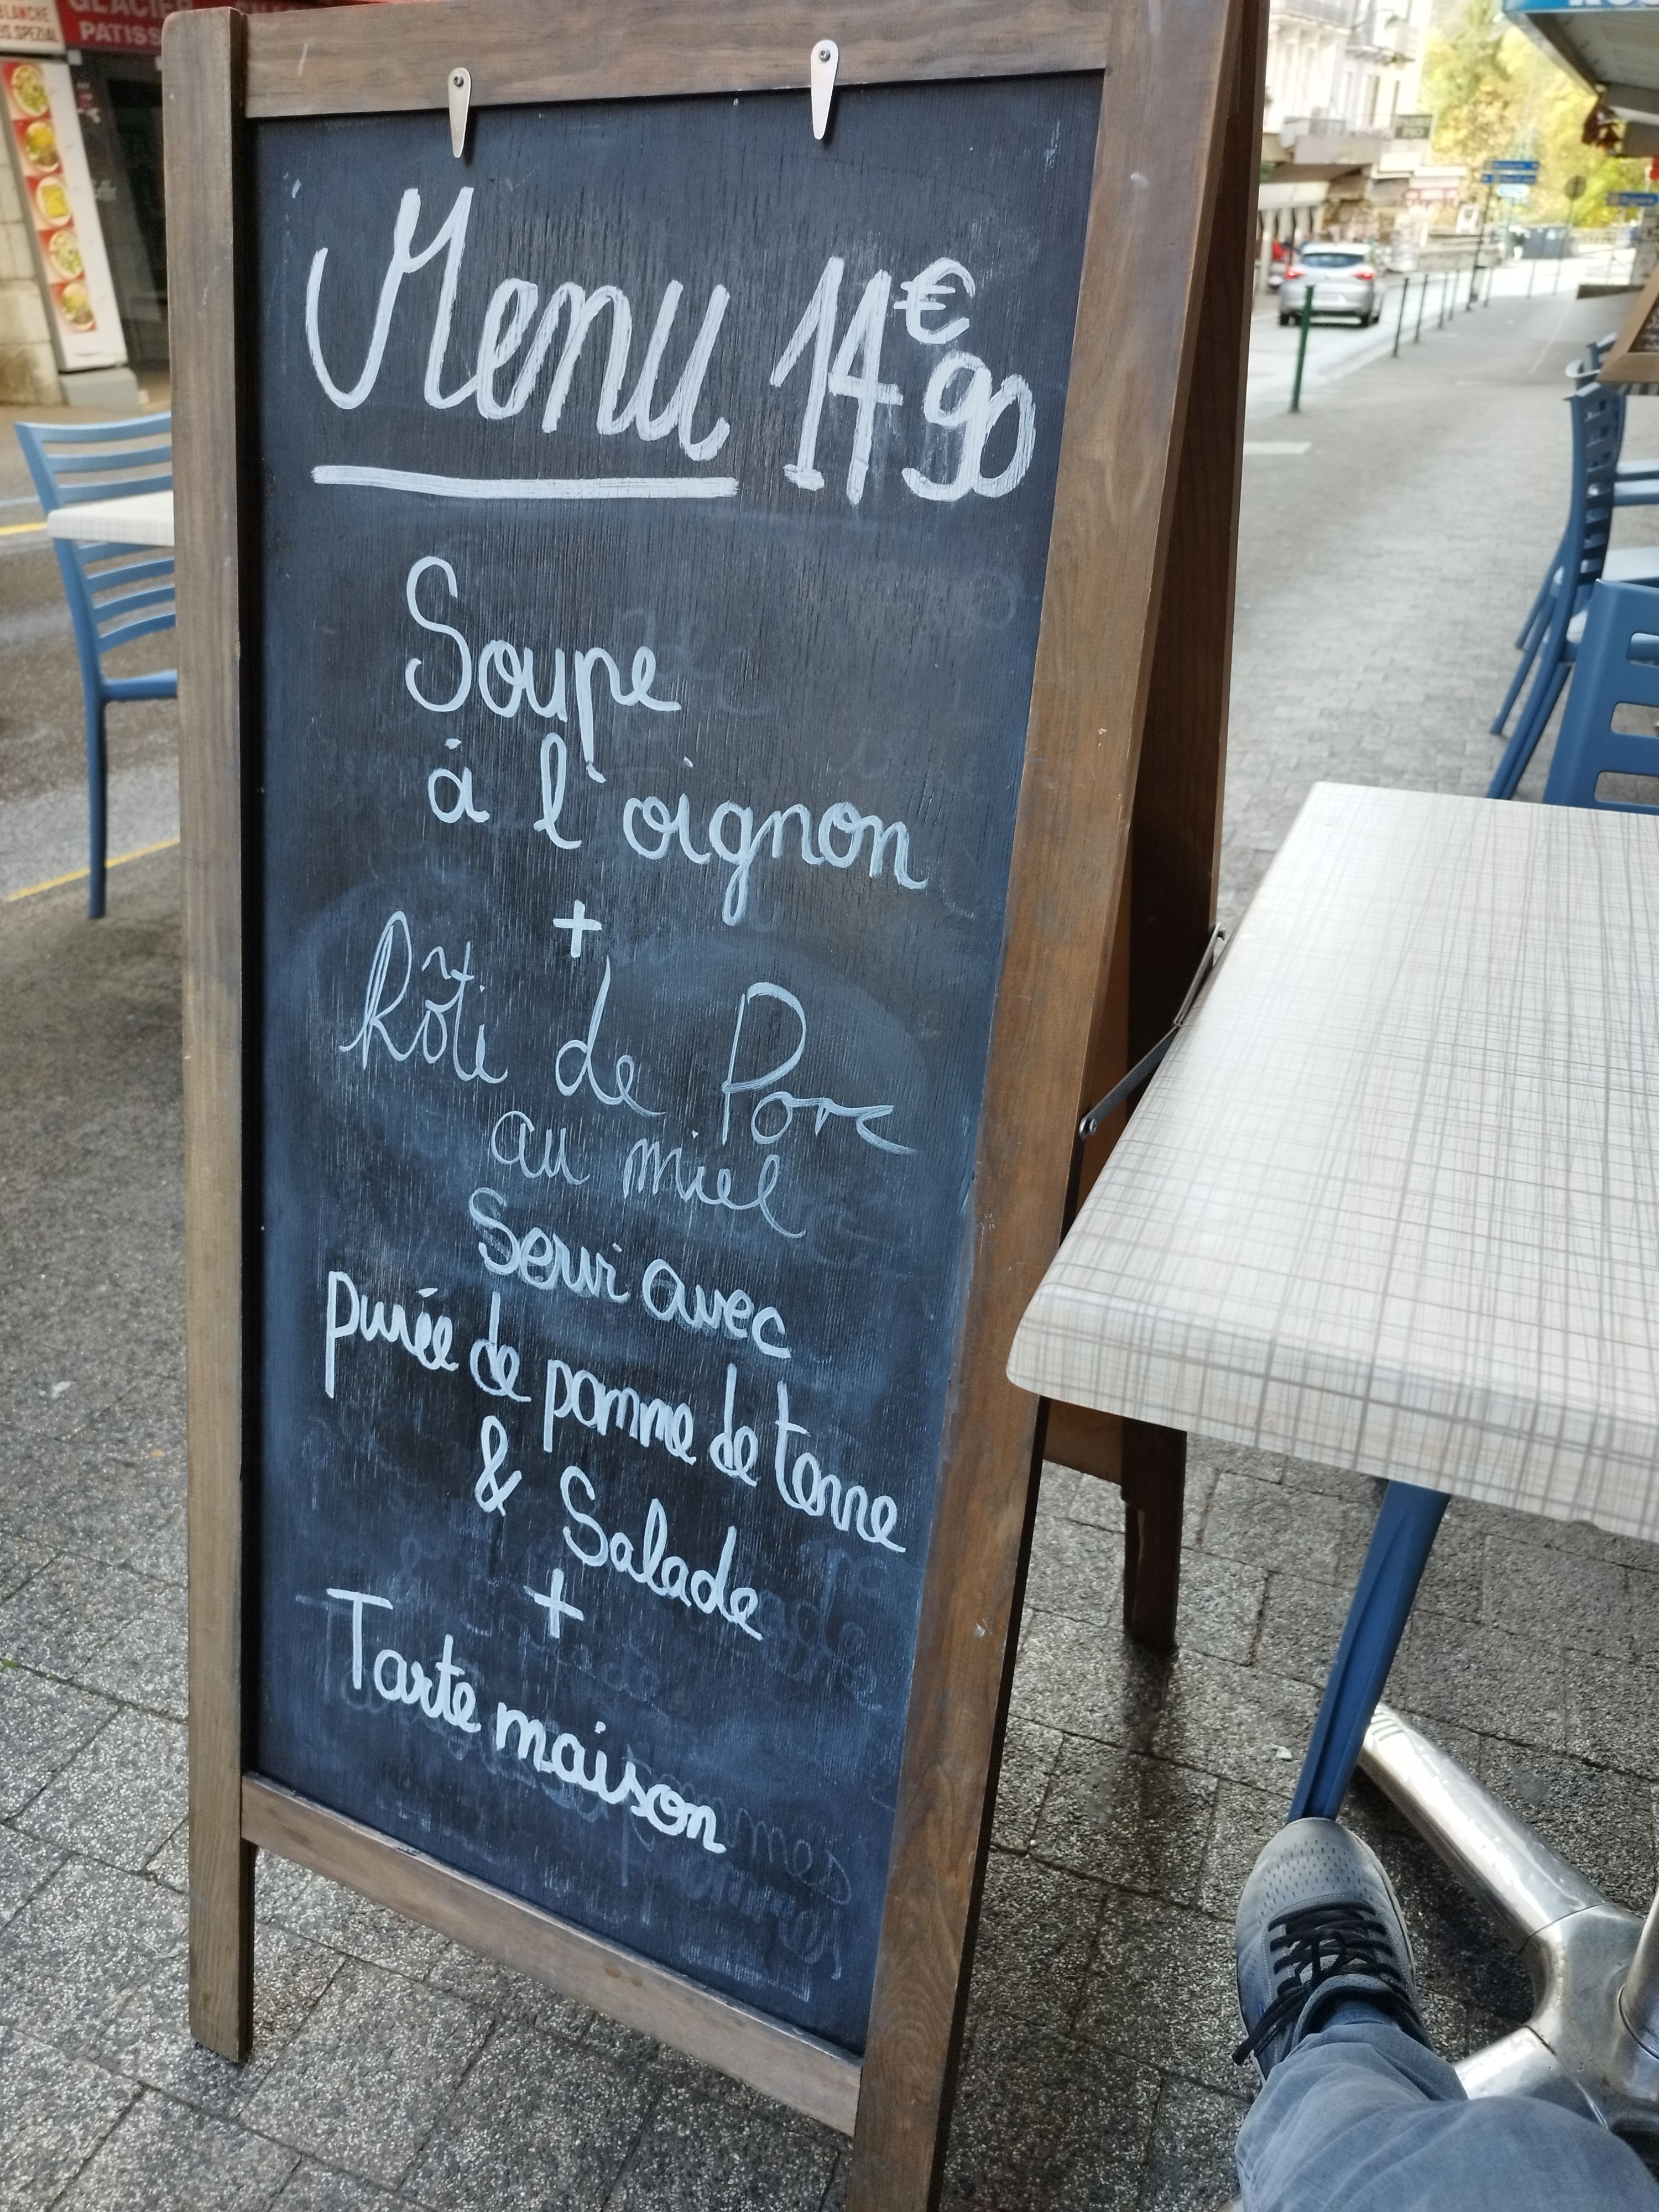 GLACIER
BLANCHE
PATISS
IS.SPEZIAL
Menu 14€90
Soupe
à l'oignon
+
Rôti de Porc
au miel
Servi avec
purée de pomme de terre
& Salade
+
Tarte maison